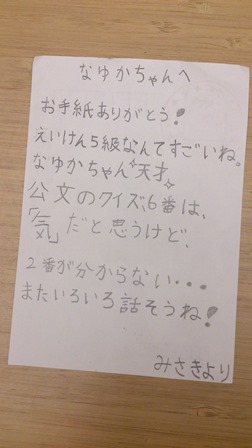 なゆかちゃんへ
お手紙ありがとう!
えいけん5級なんてすごいね。
なゆかちゃん天才
公文のクイズ、6番は、
「気」だと思うけど、
2番が分からない・・・
またいろいろ話そうね!
みさきより